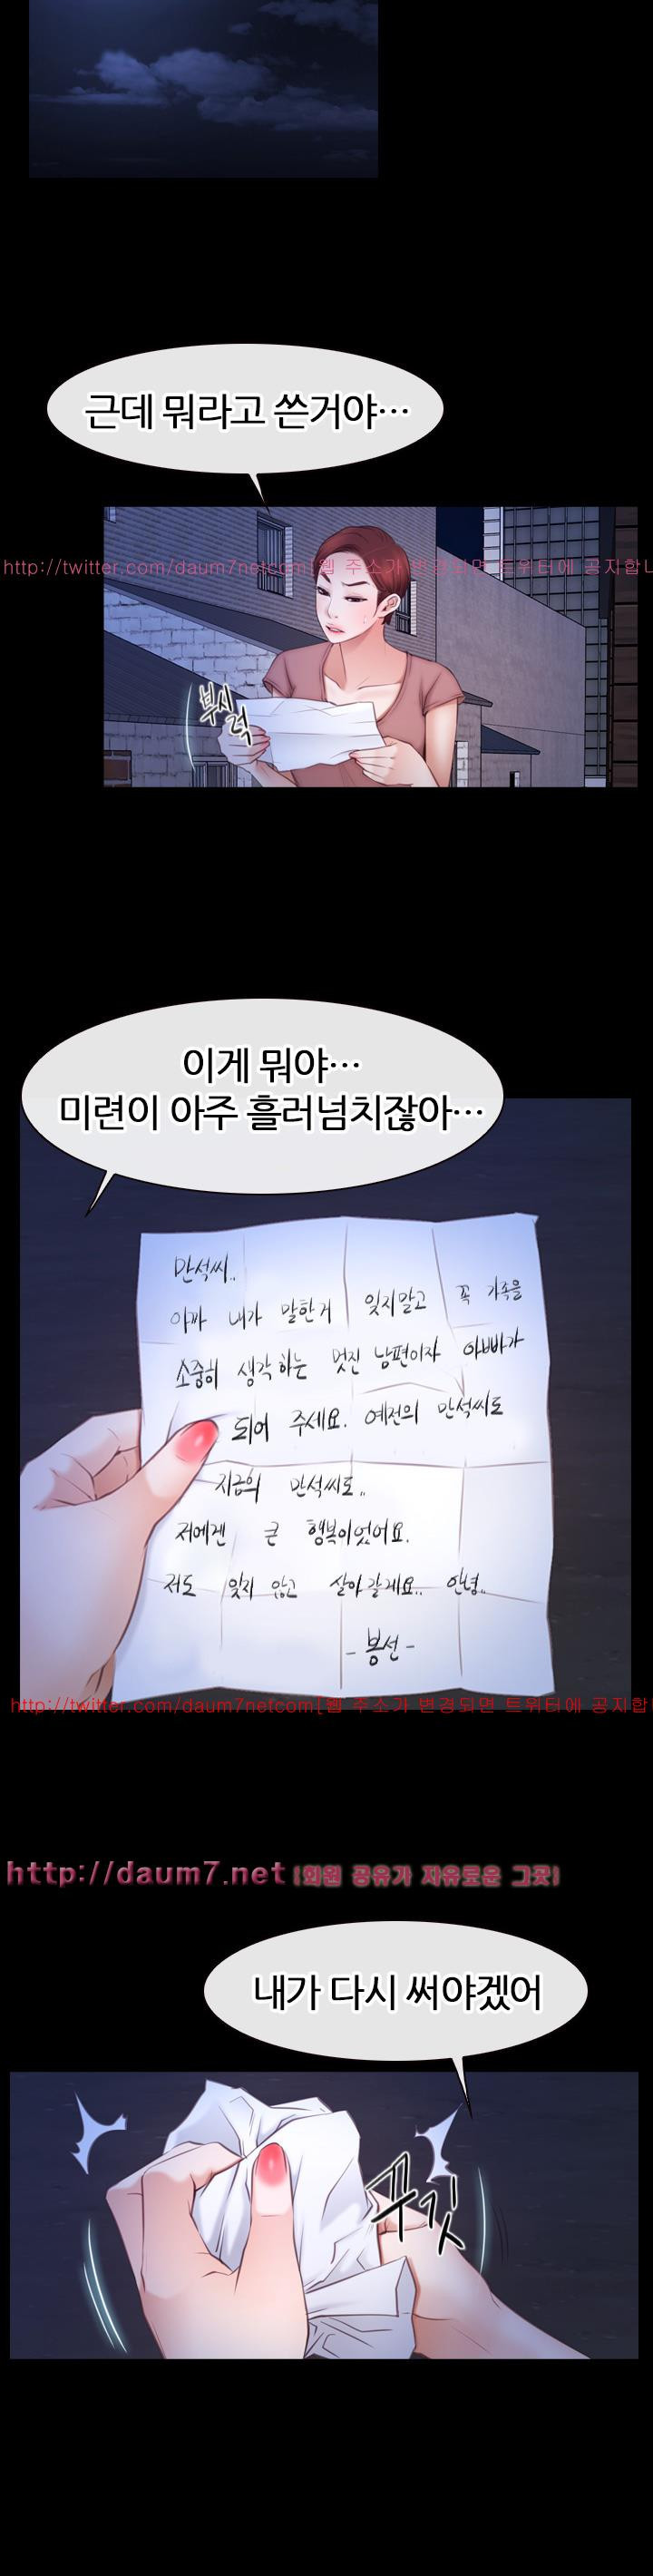 근데 뭐라고 쓴거야…
http://twitter.com/daum7netcom[웹 주소가 변경되면 트위터에 공지합니
부시럭
이게 뭐야…
미련이 아주 흘러넘치잖아…
만석씨..
아까 내가 말한거 잊지말고 꼭 가족을
소중히 생각하는 멋진 남편이자 아빠가
되어 주세요. 예전의 만석씨도
지금의 만석씨도..
저에겐 큰 행복이었어요.
저도 잊지 않고 살아갈게요.. 안녕..
- 봉선 -
http://twitter.com/daum7netcom[웹 주소가 변경되면 트위터에 공지합니
http://daum7.net [회원 공유가 자유로운 그곳]
내가 다시 써야겠어
꾸깃